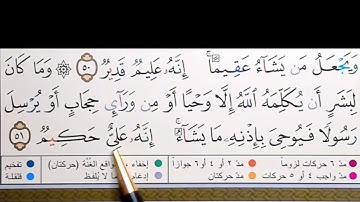 وَيَجْعَلُ مَن يَشَآءُ عَقِيمًا ۚ إِنَّهُۥ عَلِيمٌ قَدِيرٌ ٥٠ ۞ وَمَا كَانَ
لِبَشَرٍ أَن يُكَلِّمَهُ ٱللَّهُ إِلَّا وَحْيًا أَوْ مِن وَرَآئِ حِجَابٍ أَوْ يُرْسِلَ
رَسُولًا فَيُوحِىَ بِإِذْنِهِۦ مَا يَشَآءُ ۚ إِنَّهُۥ عَلِىٌّ حَكِيمٌ ٥١
مدّ ٦ حركات لزوماً مدّ ٢ أو ٤ أو ٦ جوازاً إخفاء، مواقع الغُنَّة (حركتان) تفخيم
مدّ واجب ٤ أو ٥ حركات مدّ حركتان إدغام، لا يُلفظ قلقلة